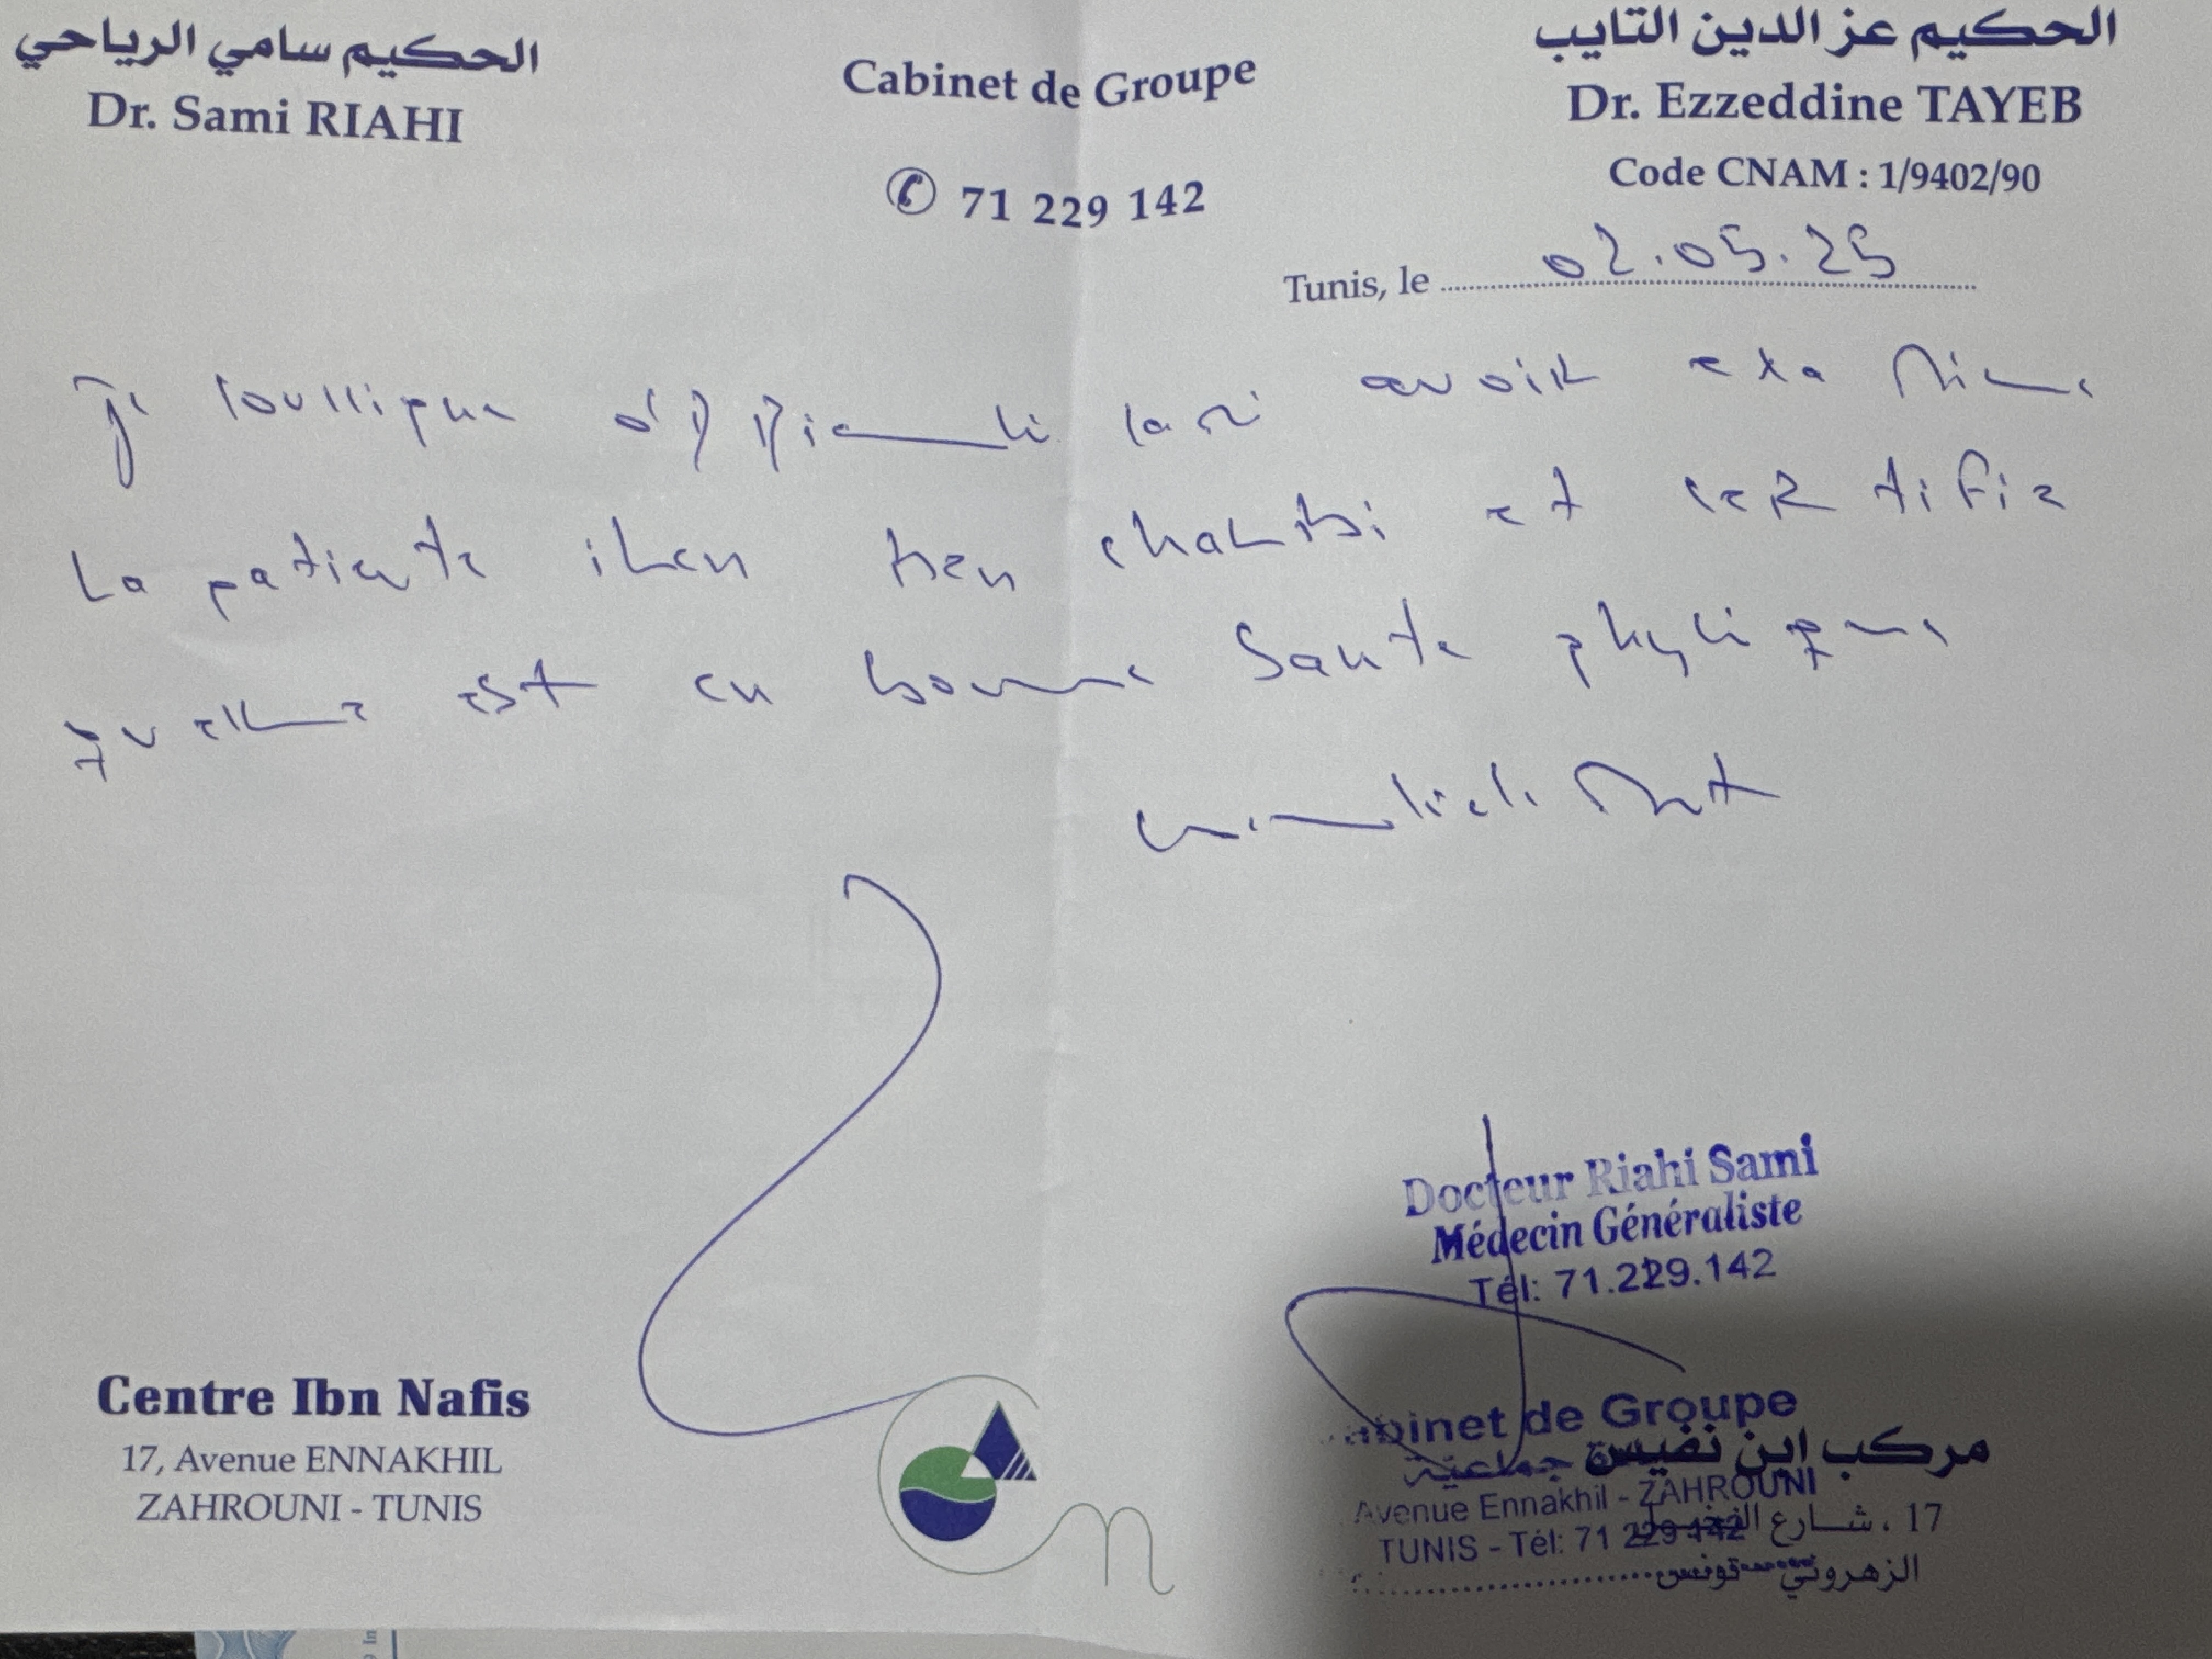 الحكيم سامي الرياحي
Dr. Sami RIAHI
Cabinet de Groupe
✆ 71 229 142
الحكيم عز الدين التايب
Dr. Ezzeddine TAYEB
Code CNAM : 1/9402/90
Tunis, le 02.05.25
Je soussigné dr Riahi sami avoir examiné
La patiente ben et certifie
qu'elle est en bonne santé physique
Docteur Riahi Sami
Médecin Généraliste
Tél: 71.229.142
Centre Ibn Nafis
17, Avenue ENNAKHIL
ZAHROUNI - TUNIS
abinet de Groupe
جماعيّة
Avenue Ennakhil - ZAHROUNI
TUNIS - Tél: 71 229 142
مركب ابن نفيس
17 ، شارع
الزهروني تونس